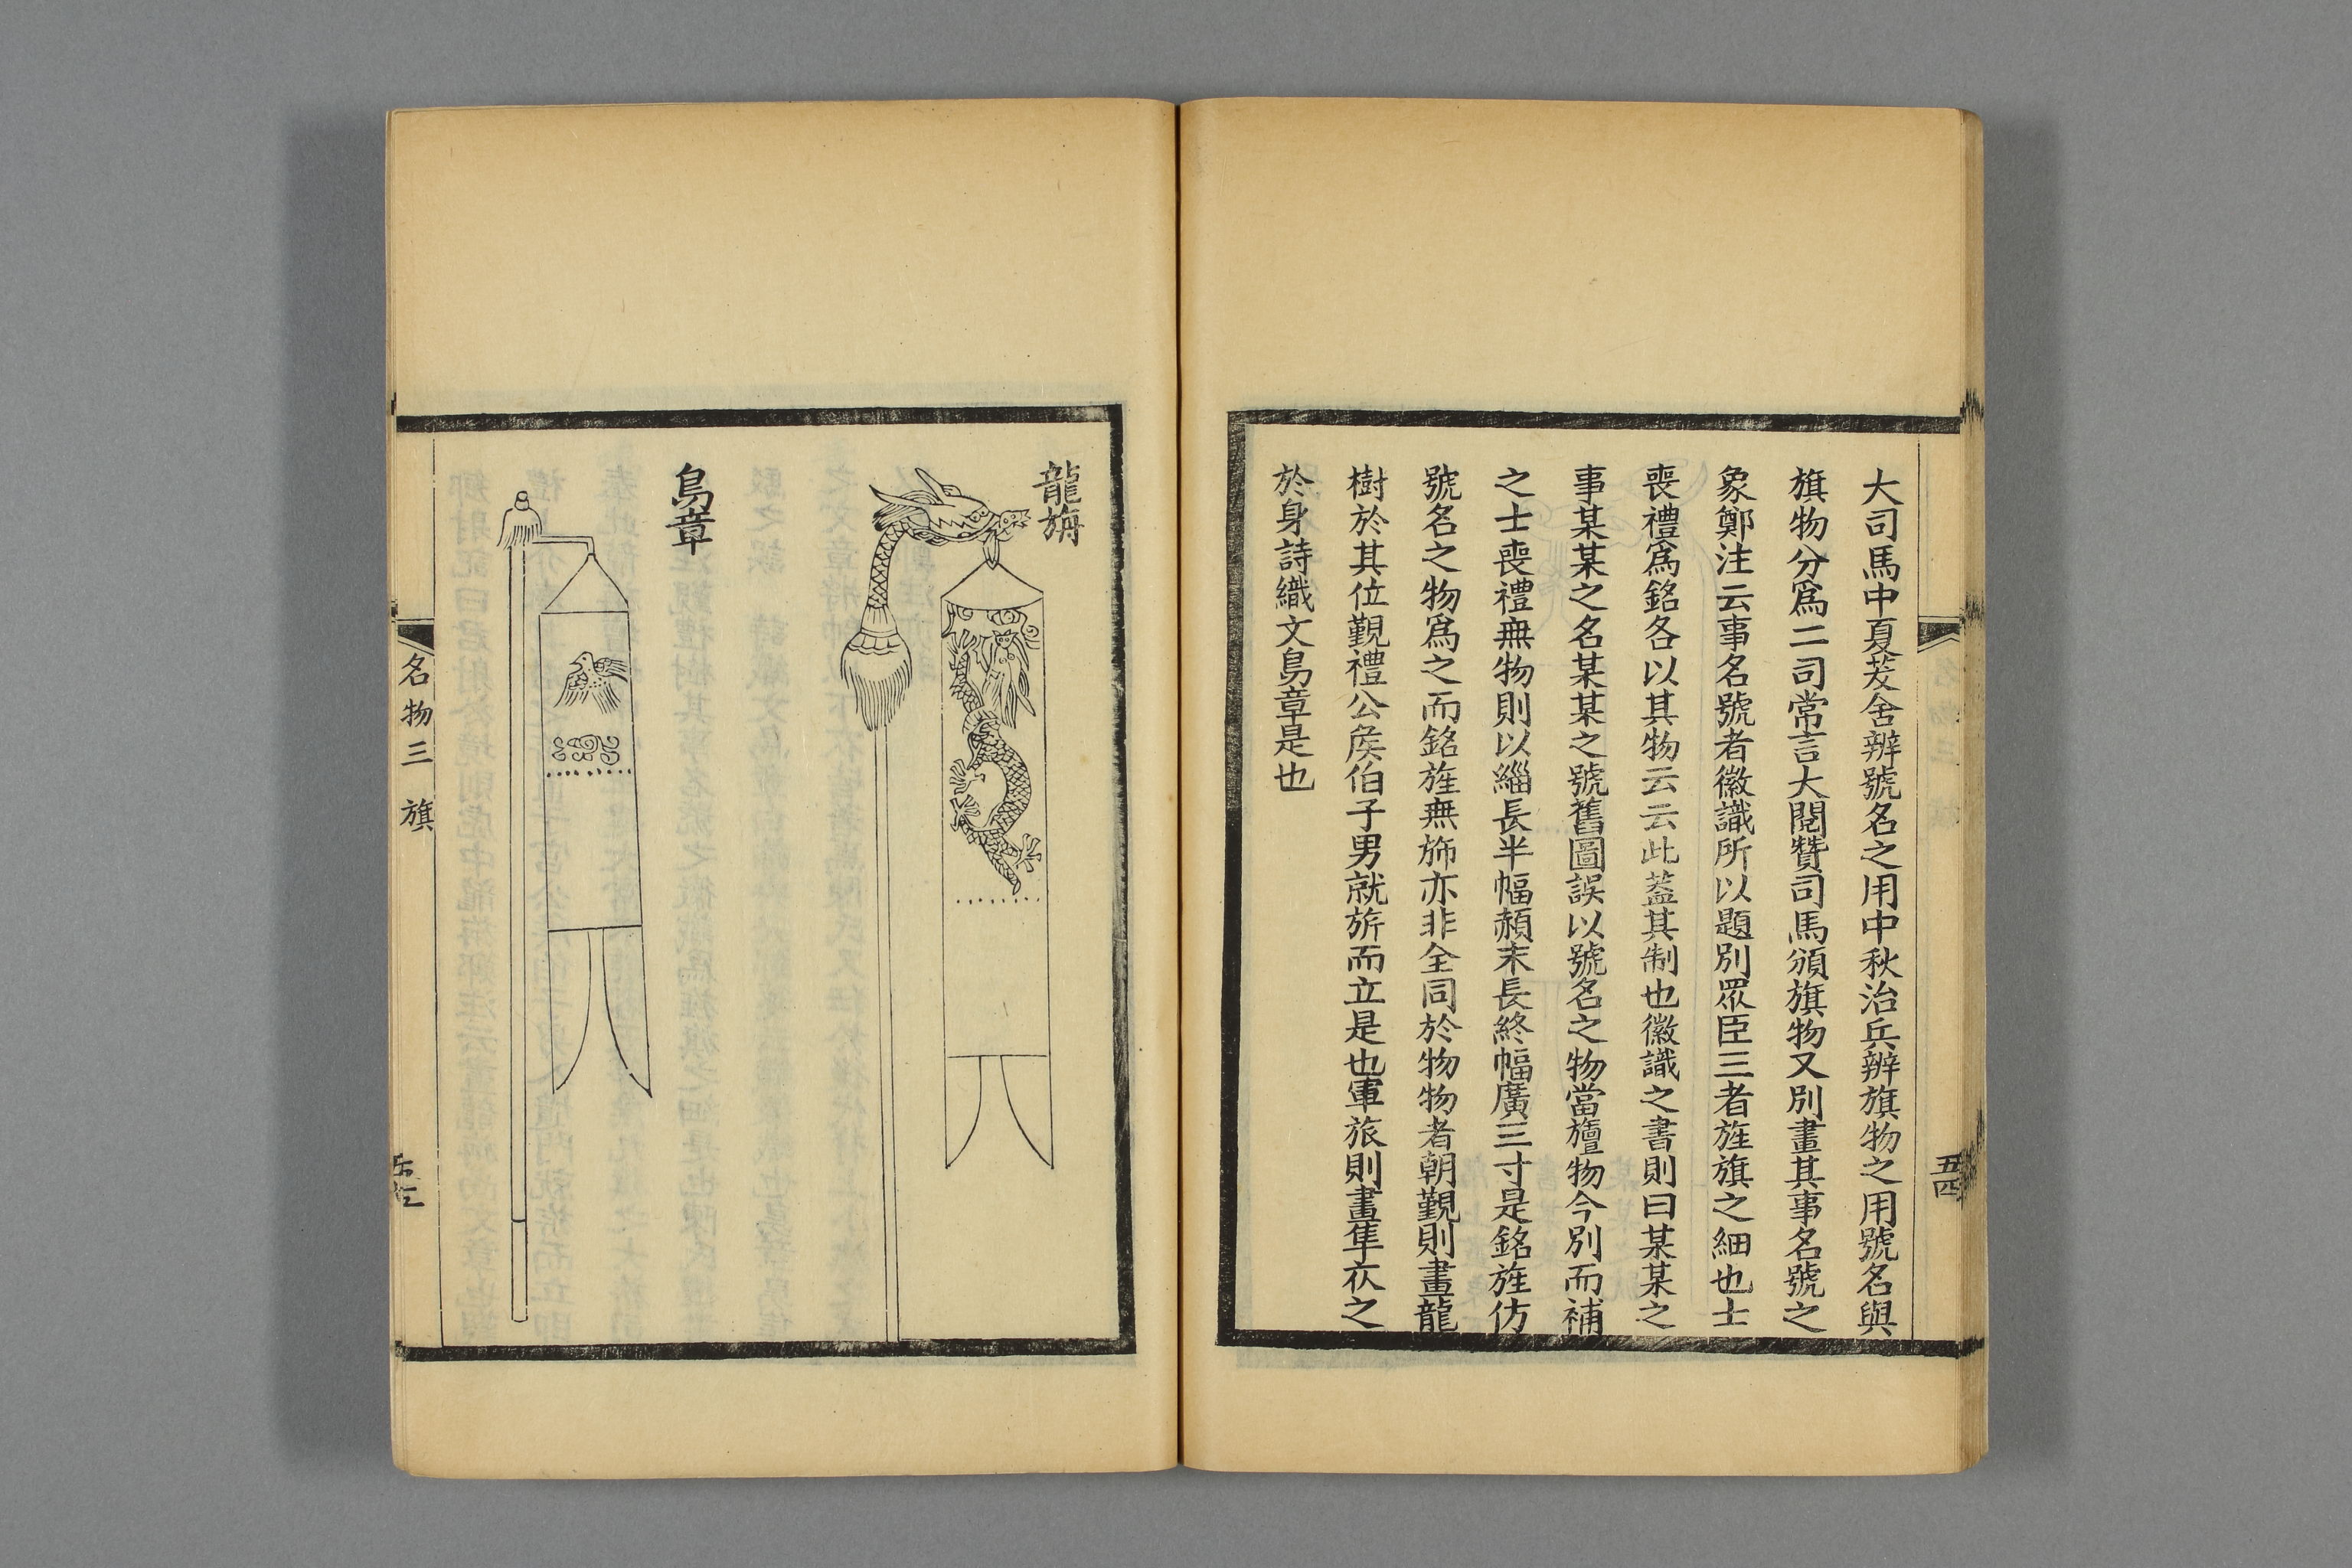 大司馬中夏茇舍辨號名之用中秋治兵辨旗物之用號名與
旗物分爲二司常言大閱贊司馬頒旗物又別畫其事名號之
象鄭注云事名號者徽識所以題別眾臣三者旌旗之細也士
喪禮爲銘各以其物云云此蓋其制也徽識之書則曰某某之
事某某之名某某之號舊圖誤以號名之物當旜物今別而補
之士喪禮無物則以緇長半幅赬末長終幅廣三寸是銘旌仿
號名之物爲之而銘旌無斾亦非全同於物物者朝觀則畫龍
樹於其位觀禮公矦伯子男就旂而立是也軍旅則畫隼衣之
於身詩織文鳥章是也
五四
龍旃
鳥章
名物三 旗